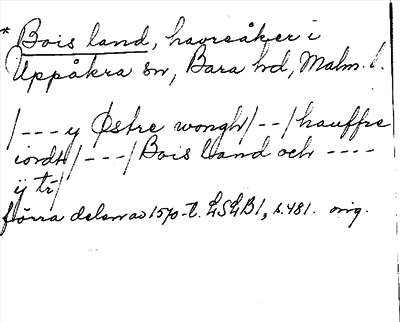 * Bois land, havreåker i
Uppåkra sn, Bara hd, Malm. l.
/--- y Østre wongh/--/hauffre
iordt/---/Bois land och ----
ÿ tr/
förra delen av 1570-t. LSLB1, s. 481. orig.